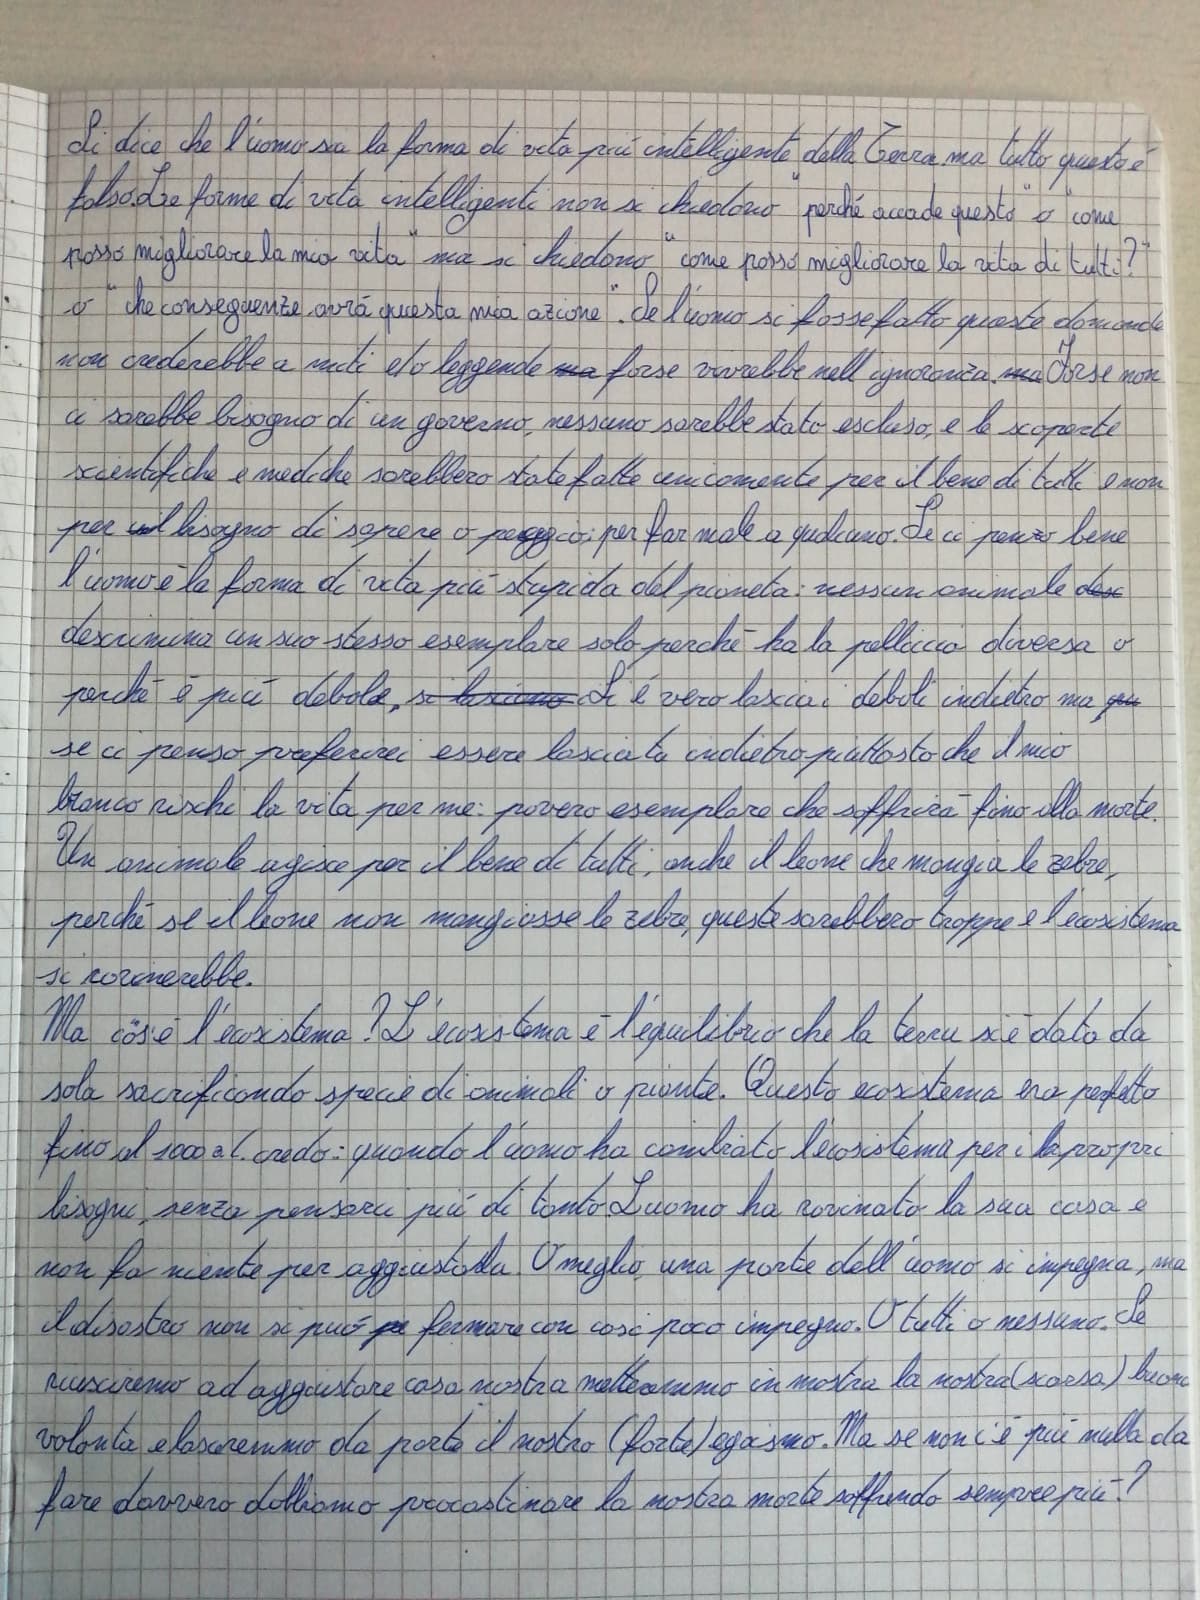 Si dice che l'uomo sia la forma di vita più intelligente della Terra, ma tutto questo è
falso. Le forme di vita intelligenti non si chiedono "perché accade questo" o "come
posso migliorare la mia vita" ma si chiedono "come posso migliorare la vita di tutti?"
o "che conseguenze avrà questa mia azione". Se l'uomo si fosse fatto queste domande
non crederebbe a miti e/o leggende ma forse vivrebbe nell'ignoranza. ma Forse non
ci sarebbe bisogno di un governo, nessuno sarebbe stato escluso, e le scoperte
scientifiche e mediche sarebbero state fatte unicamente per il bene di tutti e non
per il bisogno di sapere o peggio; per far male a qualcuno. Se ci penso bene
l'uomo è la forma di vita più stupida del pianeta: nessun animale desc
descrimina un suo stesso esemplare solo perché ha la pelliccia diversa o
perché è più debole, si lasciano Si è vero lascia i deboli indietro ma
se ci penso preferirei essere lasciata indietro piuttosto che il mio
branco rischi la vita per me: povero esemplare che soffrirà fino alla morte.
Un animale agisce per il bene di tutti, anche il leone che mangia le zebre,
perché se il leone non mangiasse le zebre, queste sarebbero troppe e l'ecosistema
si rovinerebbe.
Ma cos'è l'ecosistema? L'ecosistema è l'equilibrio che la terra si è data da
sola sacrificando specie di animali o piante. Questo ecosistema era perfetto
fino al 1000 a.C. credo: quando l'uomo ha cambiato l'ecosistema per i propri
bisogni, senza pensarci più di tanto. L'uomo ha rovinato la sua casa e
non fa niente per aggiustarla. O meglio, una parte dell'uomo si impegna, ma
il disastro non si può fermare con così poco impegno. O tutti o nessuno. Se
riusciremo ad aggiustare casa nostra metteremmo in mostra la nostra (scarsa) buona
volontà e lasceremmo da parte il nostro (forte) egoismo. Ma se non c'è più nulla da
fare davvero dobbiamo procastinare la nostra morte soffrendo sempre più?